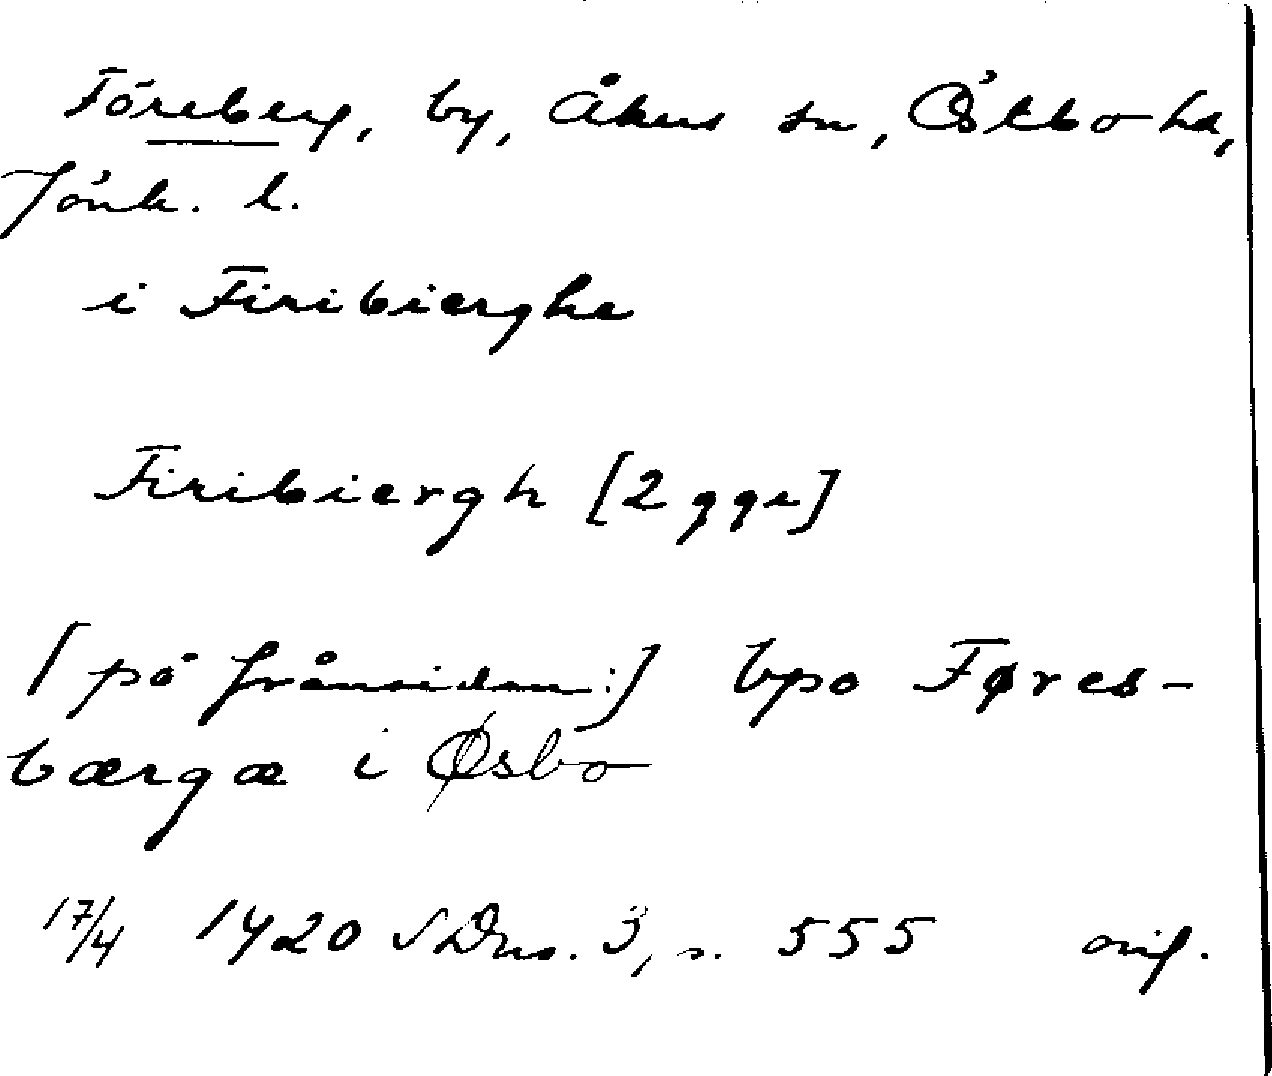 Föreberg, by, Åkers sn, Östbo hd,
Jönk. l.
i Firibierghe
Firibiergh [2 ggr]
[på frånsidan:] vpo Føres-
bærgæ i Øsbo
17/4 1420 SDns. 3, s. 555 orig.